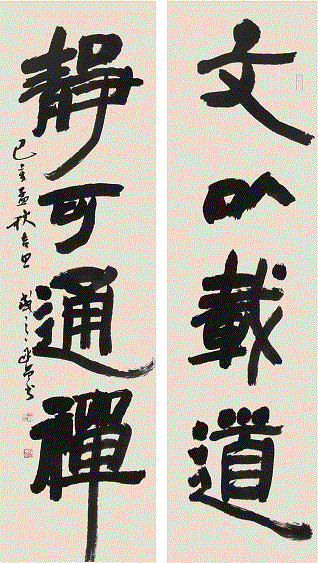 文以載道
靜可通禪
己亥孟秋吉日